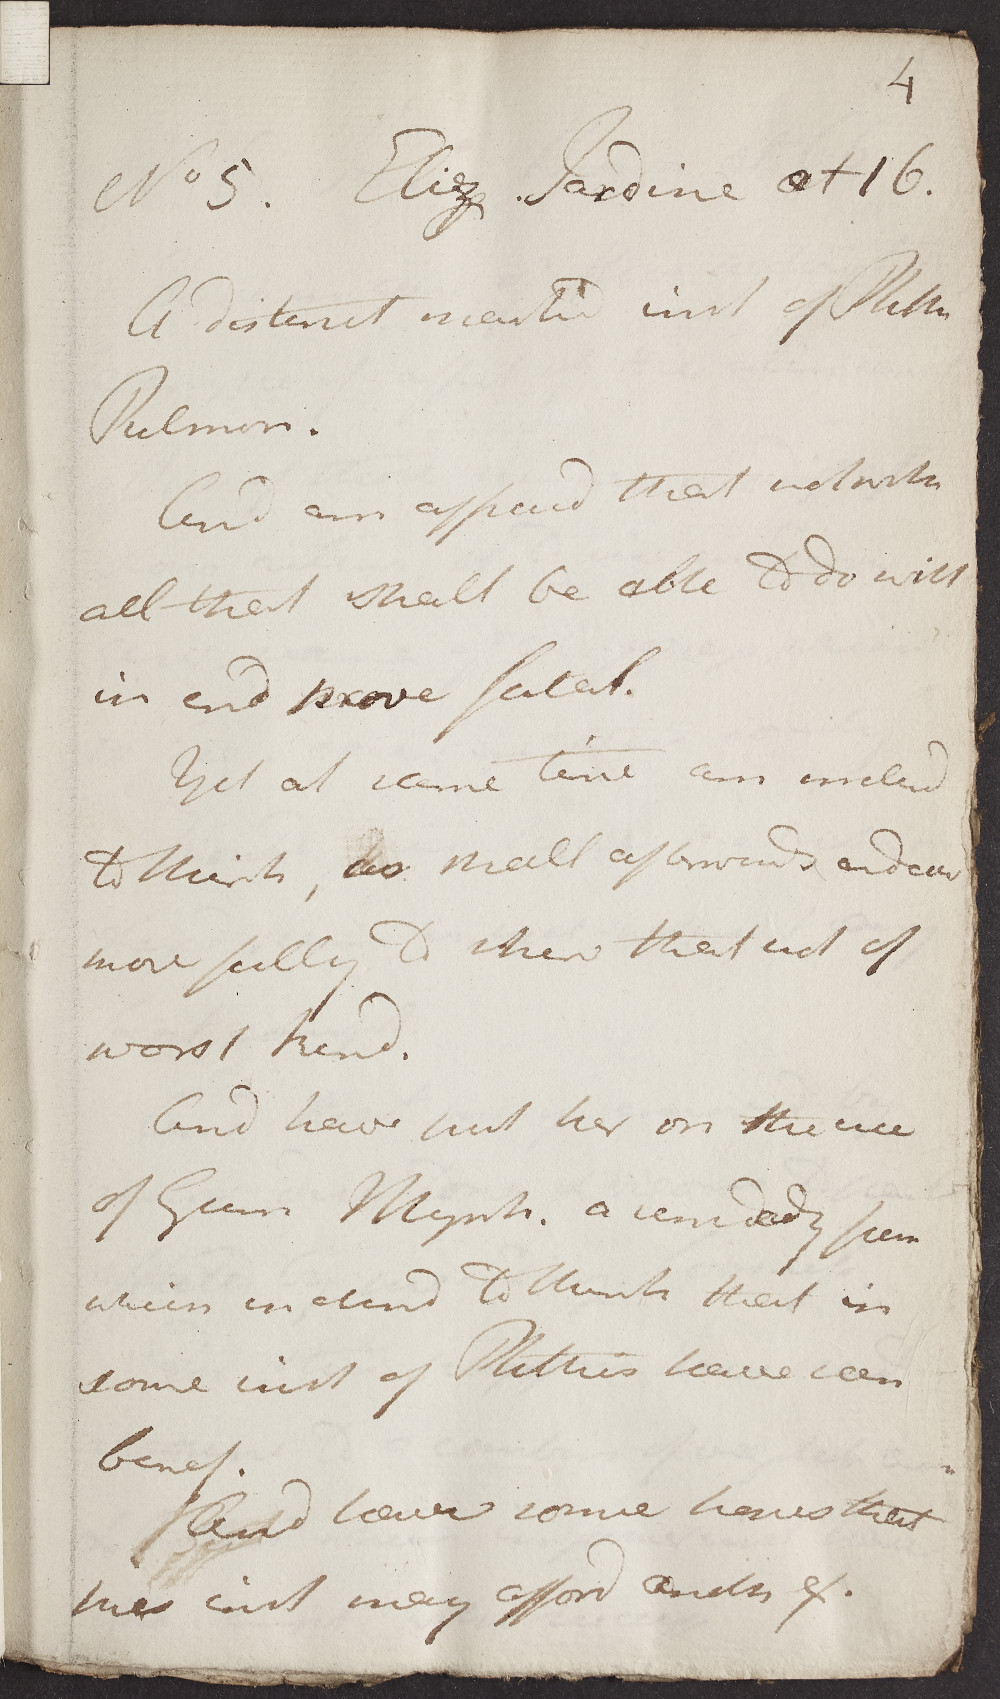 4
No 5. Eliz. Jardine aet 16.
A distinct marked inst of Phth
Pulmon.
And am affraid that notwth
all that shall be able to do will
in end prove fatal.
Yet at same time am inclind
to think, as shall afterwards endeav
more fully to shew that not of
worst kind.
And have put her on the use
of Gum Myrrh. a remedy from
which inclind to think that in
some inst of Phthisis have seen
benef.
And have some hopes that
this inst may afford anothr ex.